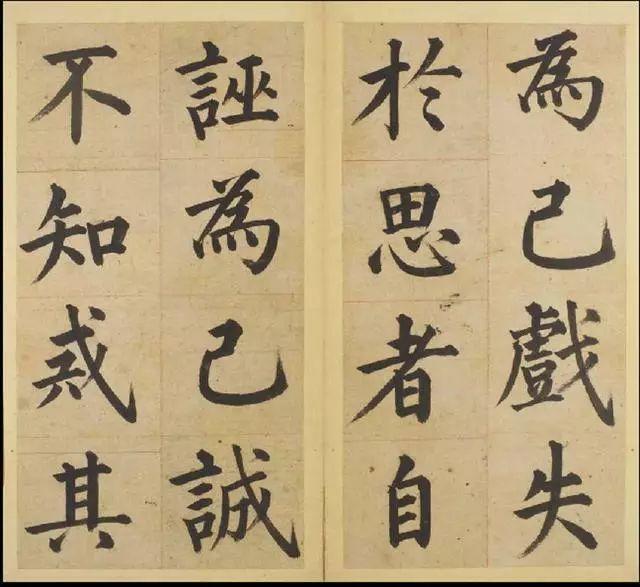 為己戲失
於思者自
誣為己誠
不知戒其